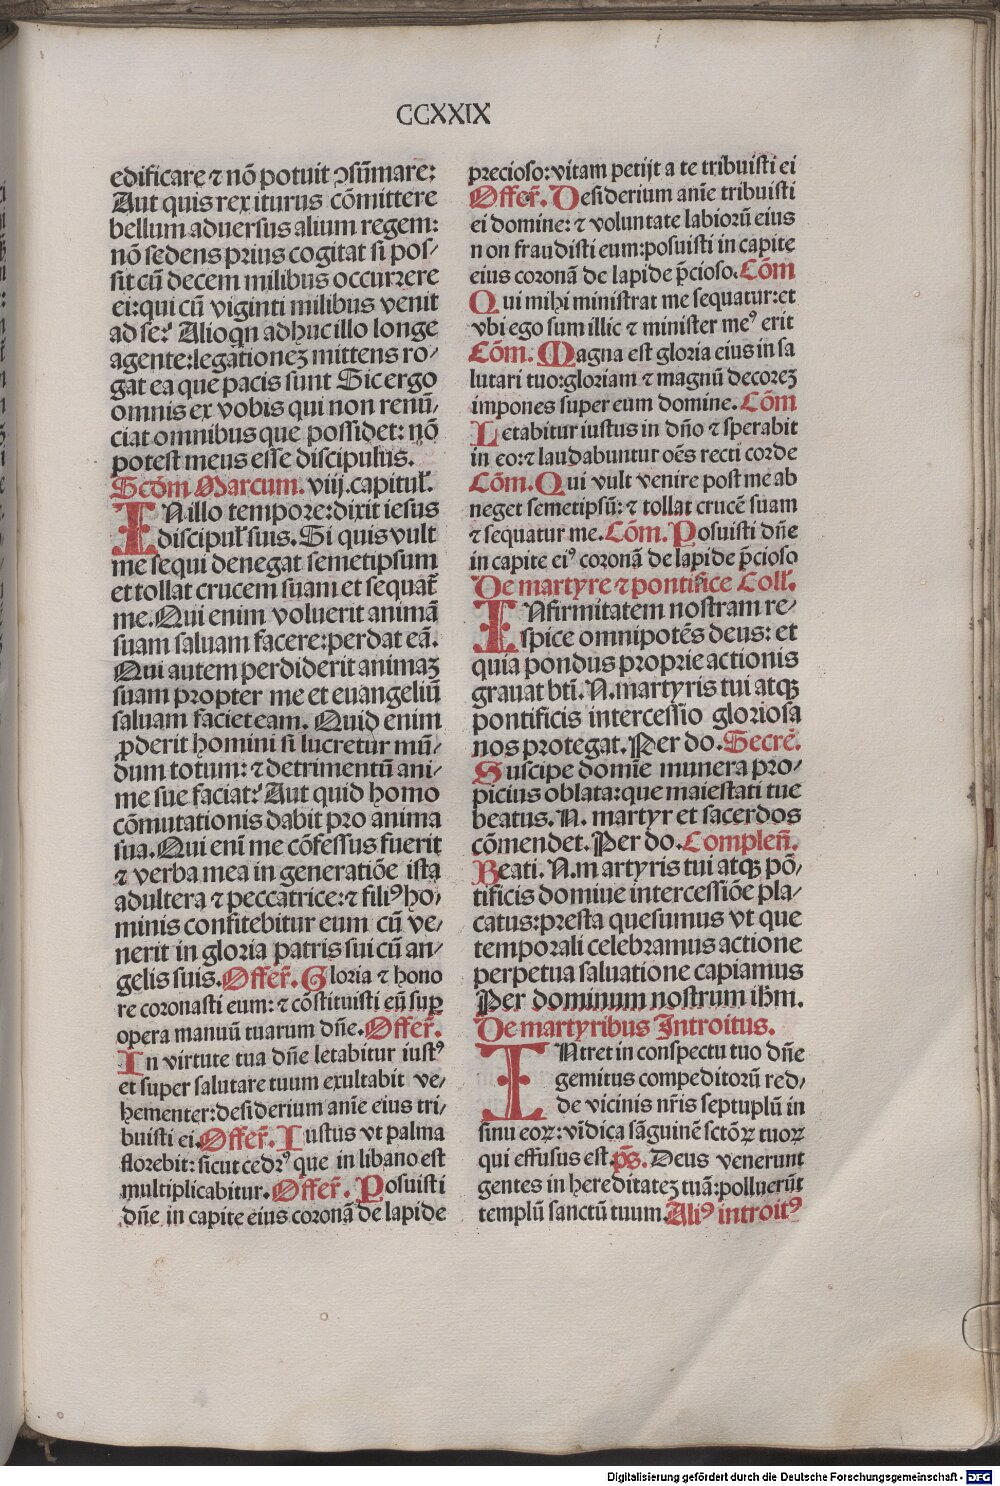 CCXXIX
edificare ⁊ nõ potuit ꝯsũmare:
Aut quis rex iturus cõmittere
bellum aduersus alium regem:
nõ sedens prius cogitat si pos-
sit cũ decem milibus occurrere
ei: qui cũ viginti milibus venit
ad se? Alioqn adhuc illo longe
agente: legationeʒ mittens ro-
gat ea que pacis sunt Sic ergo
omnis ex vobis qui non renũ-
ciat omnibus que possidet: nõ
potest meus esse discipulus.
Scd̃m Marcum. viij. capituł.
IN illo tempore: dixit iesus
discipuł suis. Si quis vult
me sequi deneget semetipsum
et tollat crucem suam et sequat̃
me. Qui enim voluerit animã
suam saluam facere: perdat eã.
Qui autem perdiderit animaʒ
suam propter me et euangeliũ
saluam faciet eam. Quid enim
ꝓderit homini si lucretur mũ-
dum totum: ⁊ detrimentũ ani-
me sue faciat? Aut quid homo
cõmutationis dabit pro anima
sua. Qui enĩ me cõfessus fuerit
⁊ verba mea in generatiõe ista
adultera ⁊ peccatrice: ⁊ filiꝰ ho-
minis confitebitur eum cũ ve-
nerit in gloria patris sui cũ an-
gelis suis. Offer̃. Gloria ⁊ hono
re coronasti eum: ⁊ cõstituisti eũ suꝑ
opera manuũ tuarum dñe. Offer̃.
In virtute tua dñe letabitur iustꝰ
et super salutare tuum exultabit ve-
hementer: desiderium anĩe eius tri-
buisti ei. Offer̃. Iustus vt palma
florebit: sicut cedrꝰ que in libano est
multiplicabitur. Offer̃. Posuisti
dñe in capite eius coronã de lapide
precioso: vitam petijt a te tribuisti ei
Offer̃. Desiderium anĩe tribuisti
ei domine: ⁊ voluntate labiorũ eius
n on fraudisti eum: posuisti in capite
eius coronã de lapide p̃cioso. Cõm
Qui mihi ministrat me sequatur: et
vbi ego sum illic ⁊ minister meꝰ erit
Cõm. Magna est gloria eius in sa
lutari tuo: gloriam ⁊ magnũ decoreʒ
impones super eum domine. Cõm
Letabitur iustus in dño ⁊ sperabit
in eo: ⁊ laudabuntur oẽs recti corde
Cõm. Qui vult venire post me ab
neget semetipsũ: ⁊ tollat crucẽ suam
⁊ sequatur me. Cõm. Posuisti dñe
in capite eiꝰ coronã de lapide p̃cioso
De martyre ⁊ pontifice Coll̃.
INfirmitatem nostram re-
spice omnipotẽs deus: et
quia pondus proprie actionis
grauat btĩ. N. martyris tui atqꝫ
pontificis intercessio gloriosa
nos protegat. Per do. Secrẽ.
Suscipe domĩe munera pro-
picius oblata: que maiestati tue
beatus. N. martyr et sacerdos
cõmendet. Per do. Compleñ.
Beati. N. martyris tui atqꝫ põ-
tificis domiue intercessiõe pla-
catus: presta quesumus vt que
temporali celebramus actione
perpetua saluatione capiamus
Per dominum nostrum ihm̃.
De martyribus Introitus.
INtret in conspectu tuo dñe
gemitus compeditorũ red-
de vicinis nr̃is septuplũ in
sinu eoꝝ: vĩdica sãguinẽ sctõꝝ tuoꝝ
qui effusus est. p̃s. Deus venerunt
gentes in hereditateʒ tuã: polluerũt
templũ sanctũ tuum. Aliꝰ introitꝰ
Digitalisierung gefördert durch die Deutsche Forschungsgemeinschaft - DFG